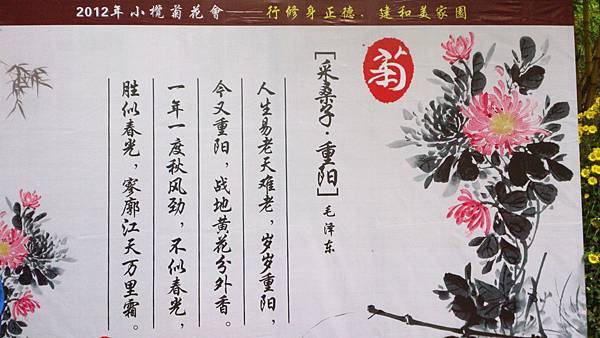 2012年小欖菊花會——行修身正德、建和美家園
菊
［采桑子·重阳］毛泽东
人生易老天难老，岁岁重阳，
今又重阳，战地黄花分外香。
一年一度秋风劲，不似春光，
胜似春光，寥廓江天万里霜。